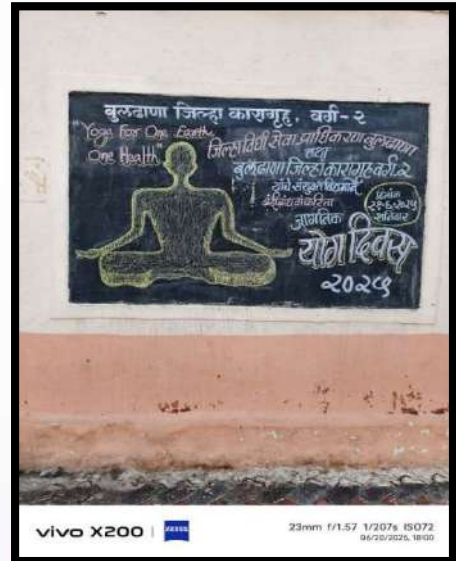 बुलढाणा जिल्हा कारागृह, वर्ग-२
"Yoga For One Earth,
One Health"
जिल्हा विधी सेवा प्राधिकरण बुलढाणा
तथा
बुलढाणा जिल्हा कारागृह वर्ग-२
यांचे संयुक्त विद्यमाने
बंदीबांधवांकरिता
जागतिक
योग दिवस
२०२५
दिनांक
२१-६-२०२५
शनिवार
vivo X200 | ZEISS
23mm f/1.57 1/207s ISO72
06/20/2025, 18:00